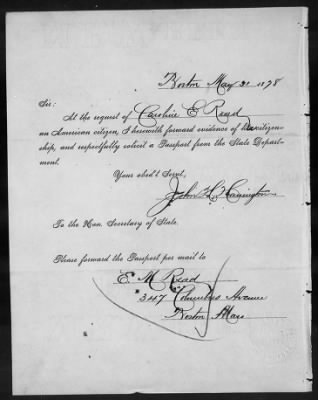 Boston May 31 1878
Sir:
At the request of Caroline E Read
an American citizen, I herewith forward evidence of her citizen-
ship, and respectfully solicit a Passport from the State Depart-
ment.
Your obed't Servt,
John H
To the Hon. Secretary of State.
Please forward the Passport per mail to
E. M. Read
347 Columbus Avenue
Boston Mass